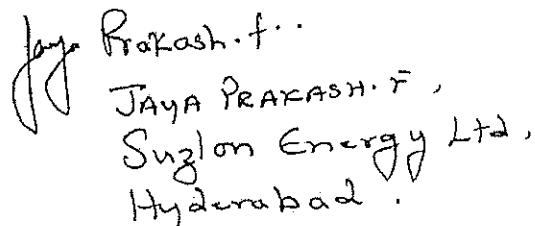 Jaya Prakash. f..
JAYA PRAKASH. F,
Suzlon Energy Ltd,
Hyderabad.